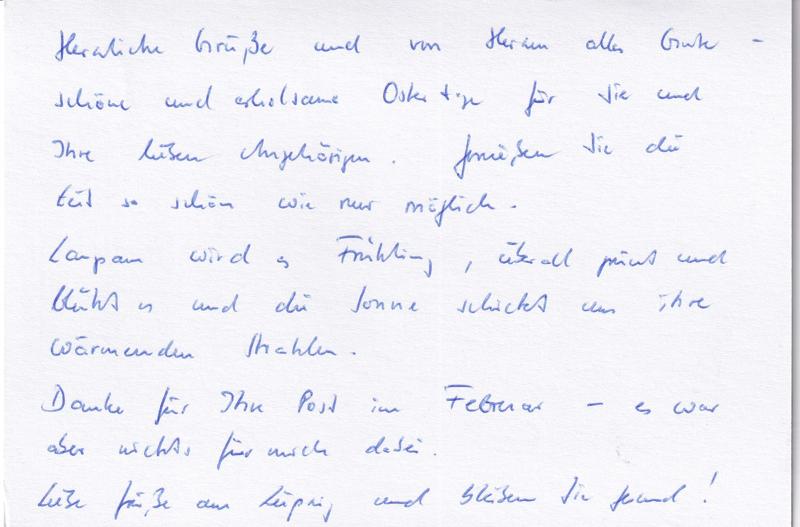 Herzliche Grüße und von Herzen alles Gute –
schöne und erholsame Ostertage für Sie und
Ihre lieben Angehörigen. Genießen Sie die
Zeit so schön wie nur möglich.
Langsam wird es Frühling, überall grünt und
blüht es und die Sonne schickt uns ihre
wärmenden Strahlen.
Danke für Ihre Post im Februar – es war
aber nichts für mich dabei.
Liebe Grüße aus Leipzig und bleiben Sie gesund!